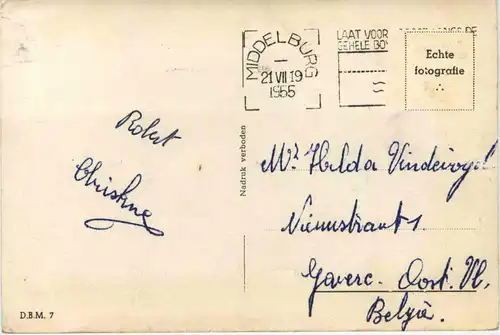 MIDDELBURG
21 VII 19
1955
LAAT VOOR
GEHELE
Echte
fotografie
Robert
Christine
Nadruk verboden
Mr Hilda Vindevogel
Nieuwstraat 1
Gavere. Oost. Vl.
België.
D.B.M. 7